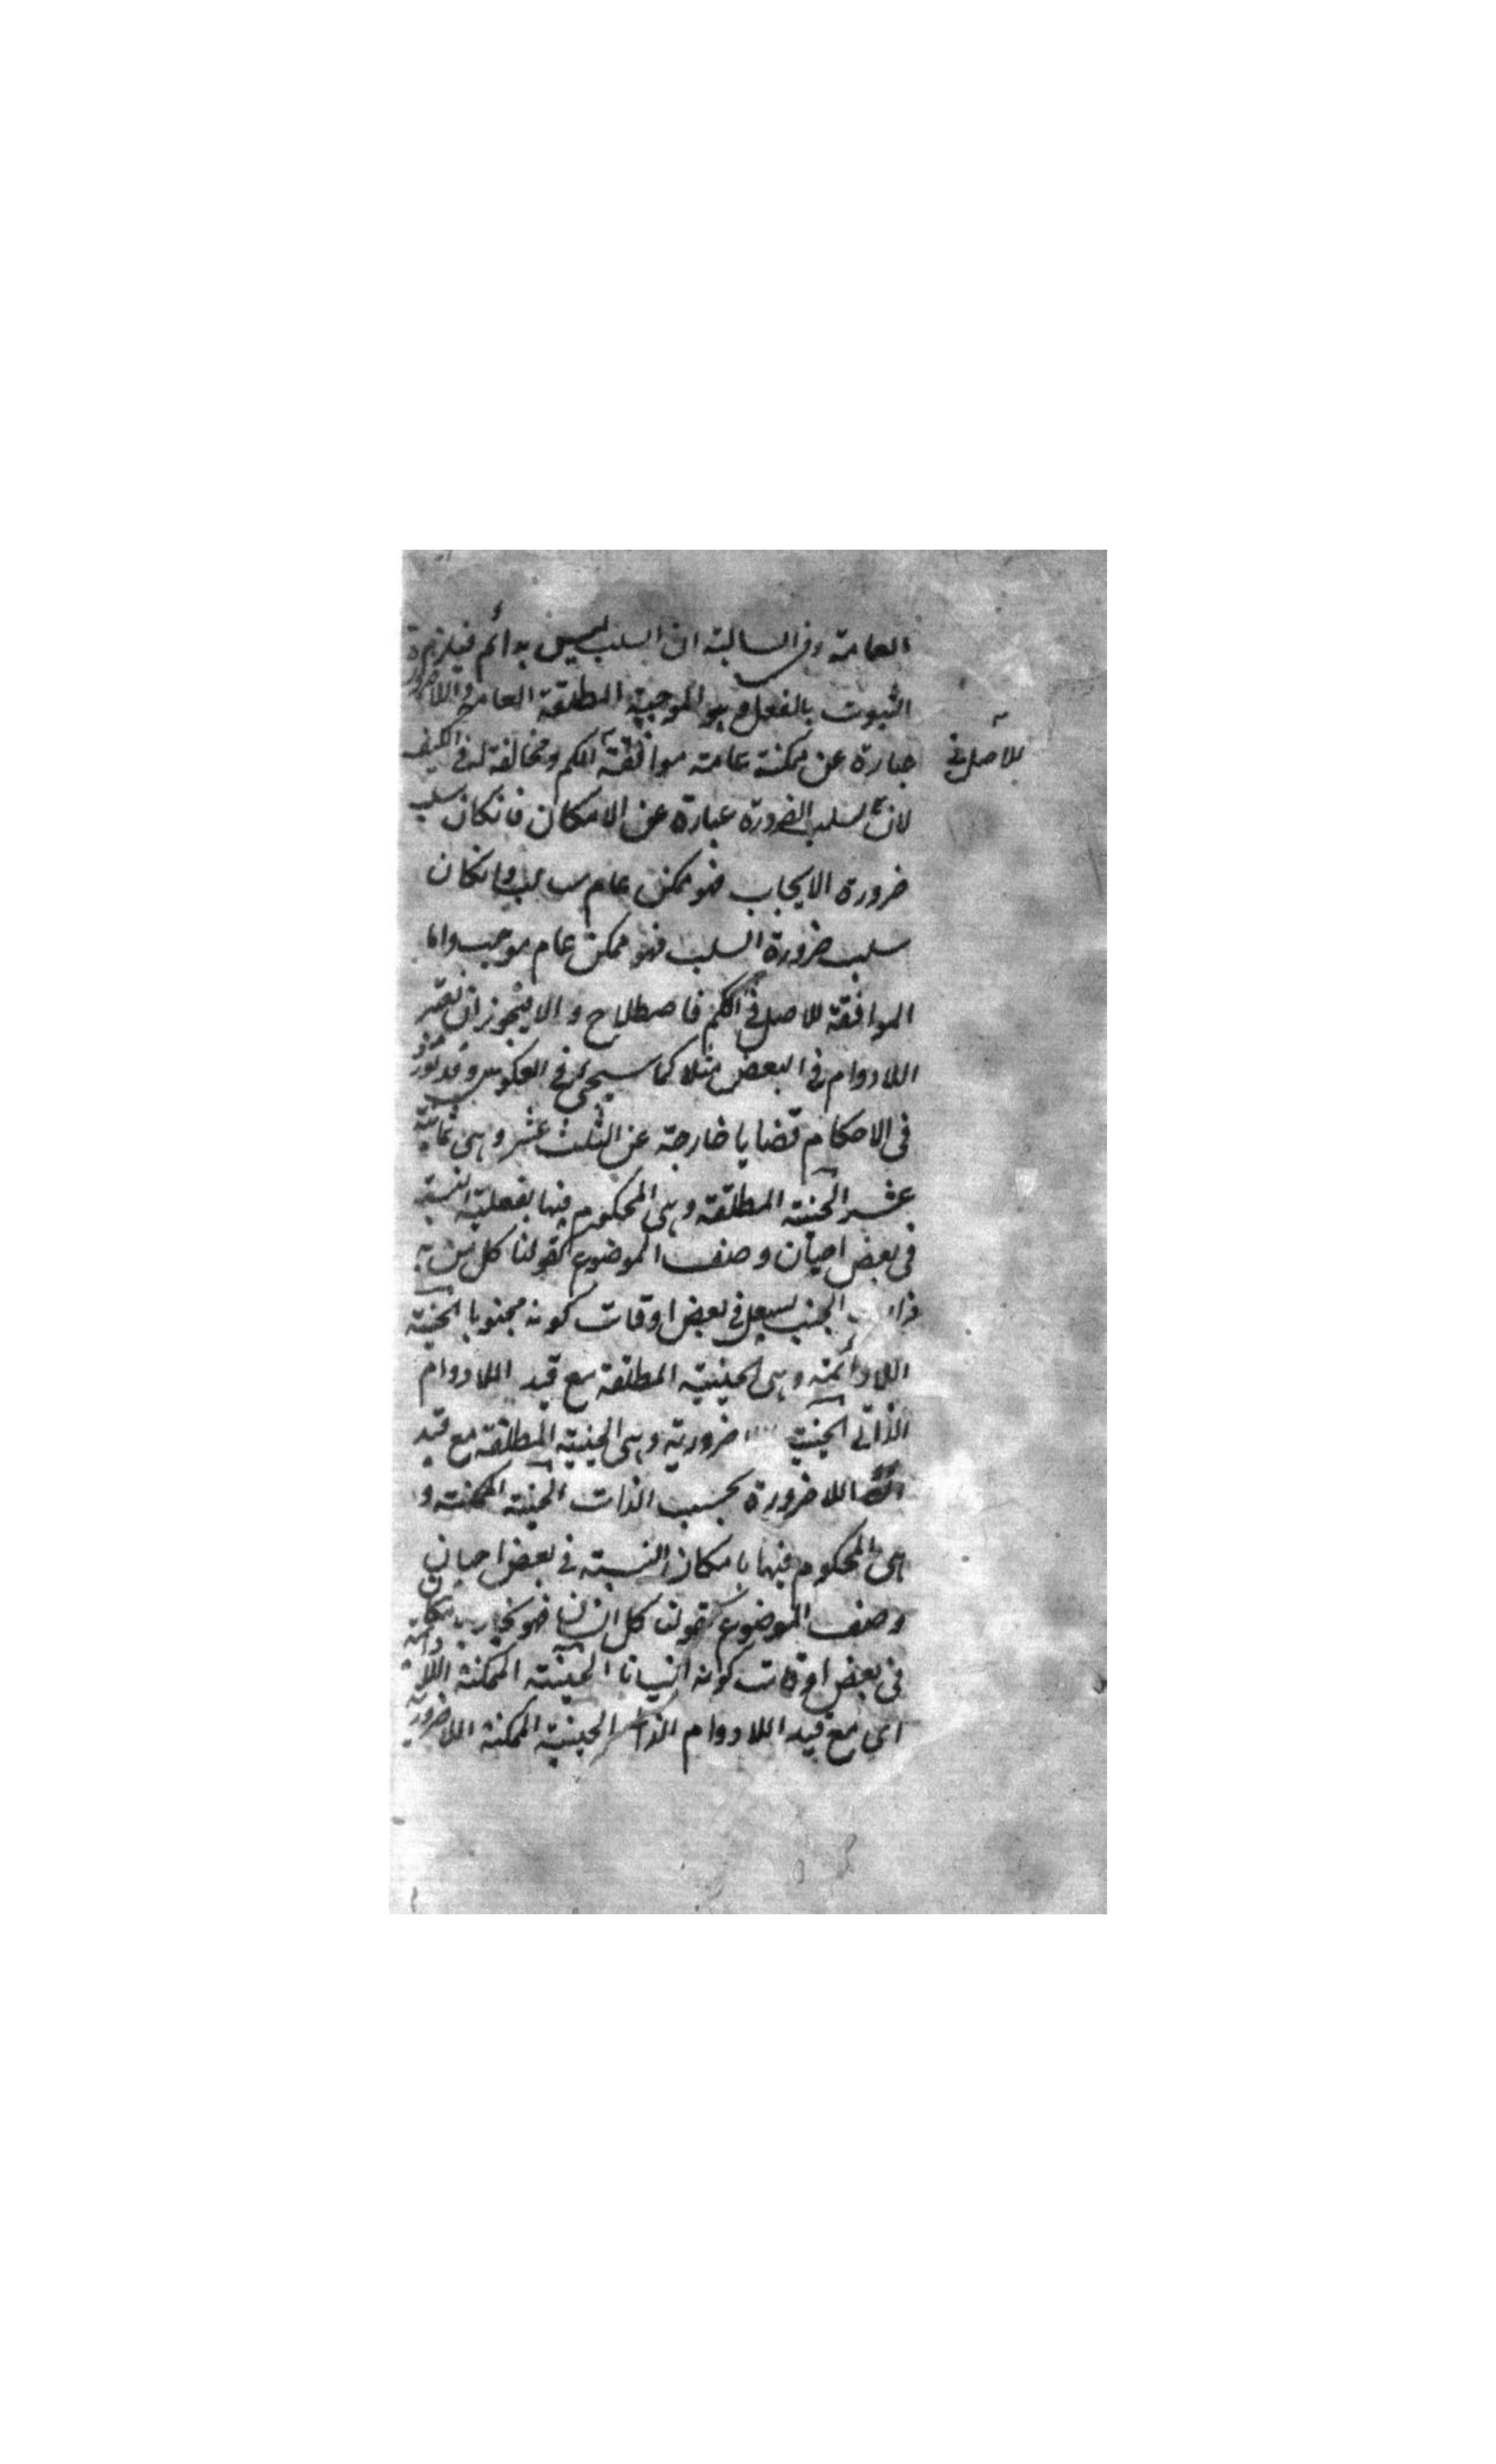 العامة وفى السالبة ان السلب ليس بدائم فيلزمه
الثبوت بالفعل وهو الموجبة المطلقة العامة واللاضرورة
عبارة عن ممكنة عامة موافقة الكم ومخالفة له فى الكيف
للاصل فى
لان سلب الضرورة عبارة عن الامكان فانكان سلب
ضرورة الايجاب فهو ممكن عام سالب وانكان
سلب ضرورة السلب فهو ممكن عام موجب واما
الموافقة للاصل فى الكم فاصطلاح والا فيجوز ان نعتبر
اللادوام فى البعض مثلا كما سيجئ فى العكوس وقد تورد
فى الاحكام قضايا خارجة عن الثلث عشر وهى ثمانية
عشر الحينية المطلقة وهى المحكوم فيها بفعلية النسبة
فى بعض احيان وصف الموضوع كقولنا كل من به
ذات الجنب يسعل فى بعض اوقات كونه مجنوبا الحينية
اللادائمة وهى الحينية المطلقة مع قيد اللادوام
الذاتى الحينية اللاضرورية وهى الحينية المطلقة مع قيد
اللاضرورة بحسب الذات الحينية الممكنة و
هى المحكوم فيها بامكان النسبة فى بعض احيان
وصف الموضوع كقولنا كل انسان فهو بالامكان
فى بعض اوقات كونه انسانا الحينية الممكنة اللادائمة
اى مع قيد اللادوام الذاتى الحينية الممكنة اللاضرورية